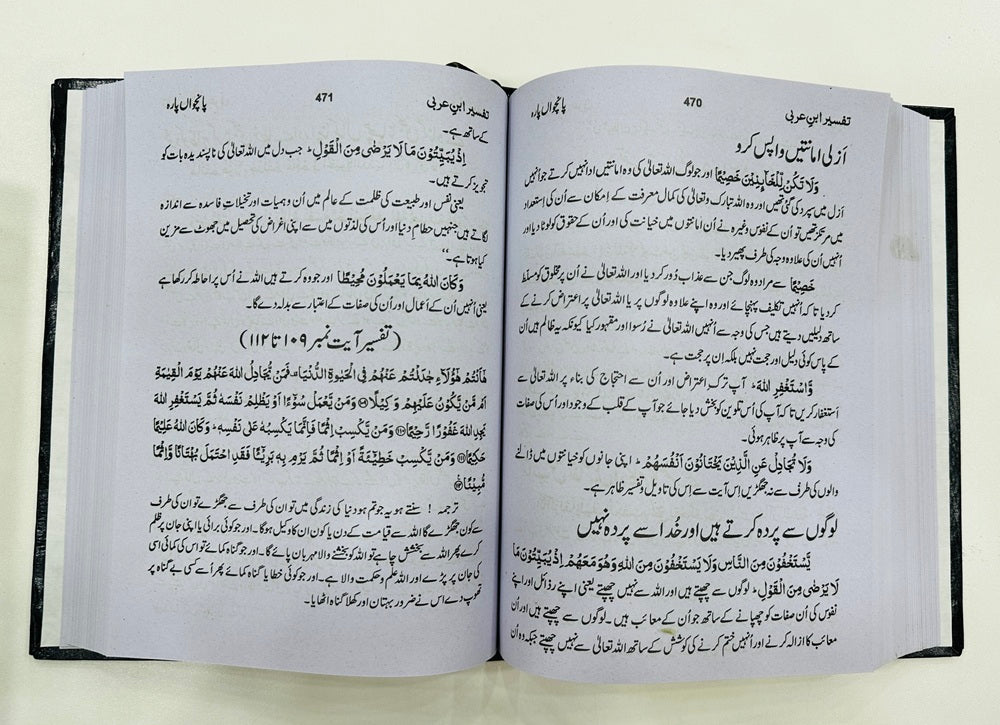 تفسیر ابنِ عربی 470 پانچواں پارہ
اَزلی امانتیں واپس کرو
وَلَا تَكُنْ لِّلْخَآئِنِيْنَ خَصِيْمًا اور جو لوگ اللہ تعالیٰ کی وہ امانتیں ادا نہیں کرتے جو اُنہیں
اَزل میں سپرد کی گئی تھیں اور وہ اللہ تبارک وتعالیٰ کی کمال معرفت کے اِمکان سے اُن کی اِستعداد
میں مرتکز تھیں تو اُن کے نفوس وغیرہ نے اُن امانتوں میں خیانت کی اور اُن کے حقوق کو لوٹا دیا اور
اُنہیں اُن کی علاوہ وجہ کی طرف پھیر دیا۔
خَصِيْمًا سے مراد وہ لوگ جن سے عذاب دُور کر دیا اور اللہ تعالیٰ نے اُن پر مخلوق کو مسلط
کر دیا تا کہ اُنہیں تکلیف پہنچائے اور وہ اپنے علاوہ لوگوں پر یا اللہ تعالیٰ پر اعتراض کرنے کے
ساتھ دلیلیں دیتے ہیں جس کی وجہ سے اُنہیں اللہ تعالیٰ نے رُسوا اور مقہور کیا کیونکہ یہ ظالم ہیں اُن
کے پاس کوئی دلیل اور حجت نہیں بلکہ اِن پر حجت ہے۔
وَّاسْتَغْفِرِ اللّٰهَ ؕ آپ ترکِ اعتراض اور اُن سے احتجاج کی بناء پر اللہ تعالیٰ سے
اَستغفار کریں تا کہ آپ کی اُس تلوین کو بخش دیا جائے جو آپ کے قلب کے وجود اور اُس کی صفات
کی وجہ سے آپ پر ظاہر ہوئی۔
وَلَا تُجَادِلْ عَنِ الَّذِيْنَ يَخْتَانُوْنَ اَنْفُسَهُمْ ؕ اپنی جانوں کو خیانتوں میں ڈالنے
والوں کی طرف سے نہ جھگڑیں اِس آیت سے اِس کی تاویل وتفسیر ظاہر ہے۔
لوگوں سے پردہ کرتے ہیں اور خُدا سے پردہ نہیں
يَّسْتَخْفُوْنَ مِنَ النَّاسِ وَلَا يَسْتَخْفُوْنَ مِنَ اللّٰهِ وَهُوَ مَعَهُمْ اِذْ يُبَيِّتُوْنَ مَا
لَا يَرْضٰى مِنَ الْقَوْلِ ؕ لوگوں سے چھپتے ہیں اور اللہ سے نہیں چھپتے یعنی اپنے رذائل اور اپنے
نفوس کی اُن صفات کو چھپانے کے ساتھ جو اُن کے معائب ہیں۔ لوگوں سے چھپتے ہیں اور اُن
معائب کا ازالہ کرنے اور اُنہیں ختم کرنے کی کوشش کے ساتھ اللہ تعالیٰ سے نہیں چھپتے جبکہ وہ اُن
تفسیر ابنِ عربی 471 پانچواں پارہ
کے ساتھ ہے۔
اِذْ يُبَيِّتُوْنَ مَا لَا يَرْضٰى مِنَ الْقَوْلِ ؕ جب دل میں اللہ تعالیٰ کی ناپسندیدہ بات کو
تجویز کرتے ہیں۔
یعنی نفس اور طبیعت کی ظلمت کے عالم میں اُن وہمیات اور تخیلاتِ فاسدہ سے اندازہ
لگاتے ہیں جنہیں حطامِ دنیا اور اُس کی لذتوں میں سے اپنی اغراض کی تحصیل میں جھوٹ سے مزین
کیا ہوتا ہے۔‘‘
وَكَانَ اللّٰهُ بِمَا يَعْمَلُوْنَ مُحِيْطًا اور جو وہ کرتے ہیں اللہ نے اُس پر احاطہ کر رکھا ہے
یعنی اُنہیں اُن کے اَعمال اور اُن کی صفات کے اعتبار سے بدلہ دے گا۔
(تفسیر آیت نمبر ۱۰۹ تا ۱۱۲)
هٰۤاَنْتُمْ هٰۤؤُلَآءِ جٰدَلْتُمْ عَنْهُمْ فِى الْحَيٰوةِ الدُّنْيَا ۟ فَمَنْ يُّجَادِلُ اللّٰهَ عَنْهُمْ يَوْمَ الْقِيٰمَةِ
اَمْ مَّنْ يَّكُوْنُ عَلَيْهِمْ وَكِيْلًا ۝۱۰۹ وَمَنْ يَّعْمَلْ سُوْٓءًا اَوْ يَظْلِمْ نَفْسَهٗ ثُمَّ يَسْتَغْفِرِ اللّٰهَ
يَجِدِ اللّٰهَ غَفُوْرًا رَّحِيْمًا ۝۱۱۰ وَمَنْ يَّكْسِبْ اِثْمًا فَاِنَّمَا يَكْسِبُهٗ عَلٰى نَفْسِهٖ ؕ وَكَانَ اللّٰهُ عَلِيْمًا
حَكِيْمًا ۝۱۱۱ وَمَنْ يَّكْسِبْ خَطِيْٓئَةً اَوْ اِثْمًا ثُمَّ يَرْمِ بِهٖ بَرِيْٓئًا فَقَدِ احْتَمَلَ بُهْتَانًا وَّاِثْمًا
مُّبِيْنًا ۝۱۱۲
ترجمہ ! سنتے ہو یہ جو تم ہو دنیا کی زندگی میں تو ان کی طرف سے جھگڑے تو ان کی طرف
سے کون جھگڑے گا اللہ سے قیامت کے دن یا کون ان کا وکیل ہوگا۔ اور جو کوئی برائی یا اپنی جان پر ظلم
کرے پھر اللہ سے بخشش چاہے تو اللہ کو بخشنے والا مہربان پائے گا۔ اور جو گناہ کمائے تو اس کی کمائی اسی
کی جان پر پڑے اور اللہ علم وحکمت والا ہے۔ اور جو کوئی خطا یا گناہ کمائے پھر اُسے کسی بے گناہ پر
تھوپ دے اس نے ضرور بہتان اور کھلا گناہ اٹھایا۔